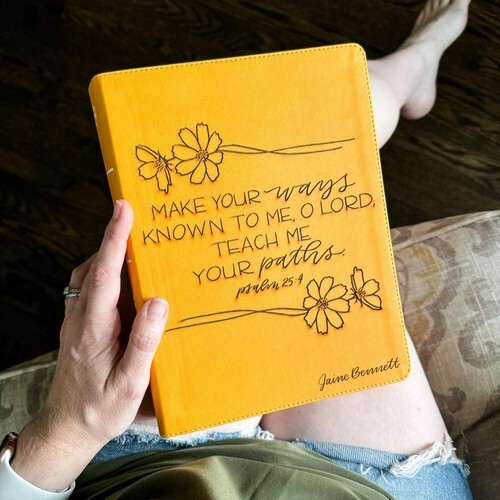 MAKE YOUR ways
KNOWN TO ME, O LORD;
TEACH ME
YOUR paths.
psalm 25:4
Jaine Bennett